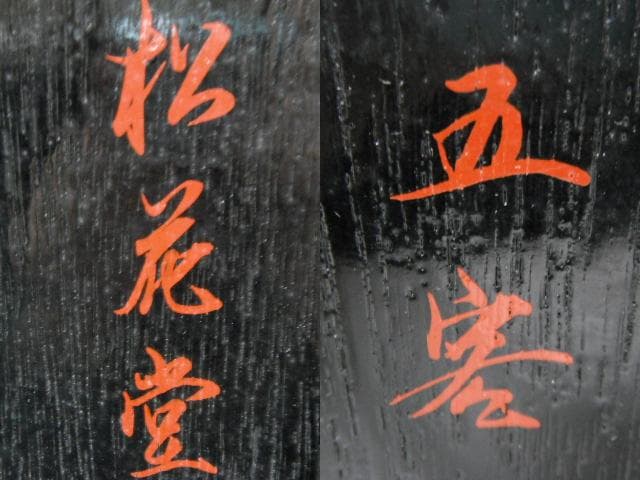 松花堂
五客